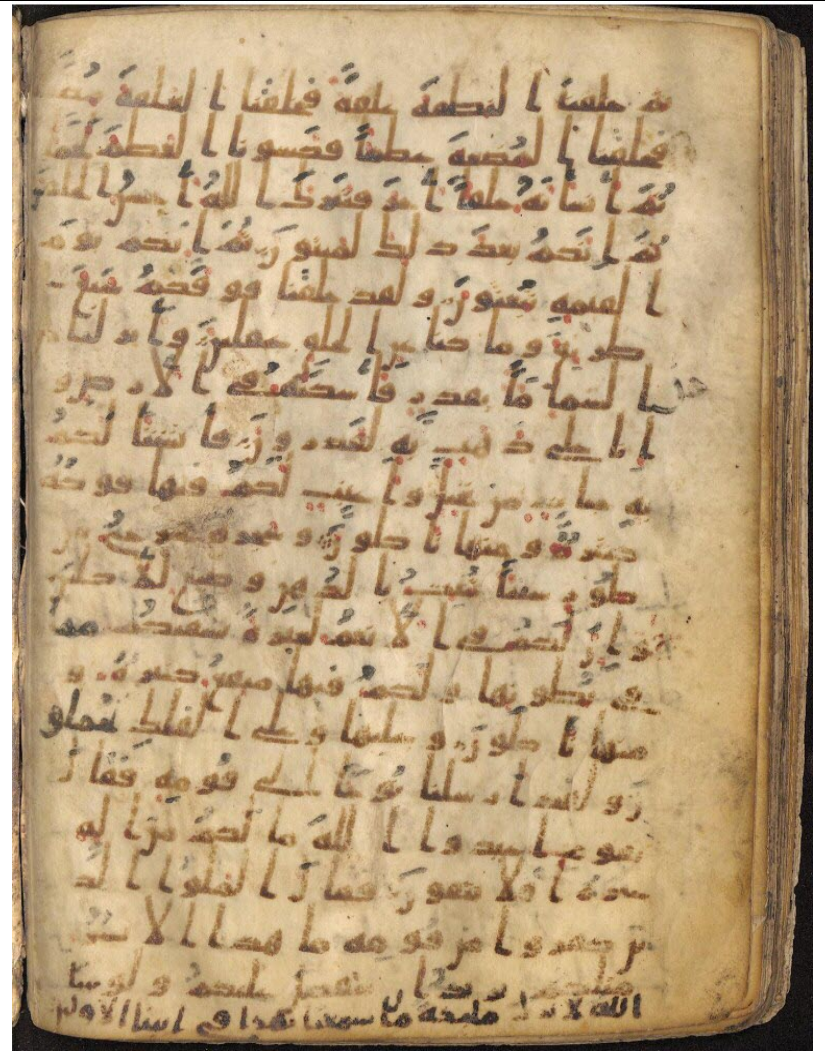 ثم خلقنا النطفة علقة فخلقنا العلقة مضغة
فخلقنا المضغة عظما فكسونا العظم لحما
ثم انشانه خلقا اخر فتبرك الله احسن الخلقين
ثم انكم بعد ذلك لميتون ثم انكم يوم
القيمه تبعثون ولقد خلقنا فوقكم سبع
طريق وما كنا عن الخلق غفلين وانزلنا من
السما ما بقدر فاسكنه في الارض و
انا على ذهب به لقدرون فانشانا لكم
به جنت من نخيل واعنب لكم فيها فوكه
كثيرة ومنها تاكلون وشجرة تخرج من
طور سينا تنبت بالدهن وصبغ للاكلين
وان لكم في الانعم لعبرة نسقيكم مما
في بطونها ولكم فيها منفع كثيرة و
منها تاكلون وعليها وعلى الفلك تحملو
ن ولقد ارسلنا نوحا الى قومه فقال
يقوم اعبدوا الله ما لكم من اله
غيره افلا تتقون فقال الملوا الذ
ين كفروا من قومه ما هذا الا بشر
مثلكم يريد ان يتفضل عليكم ولو شا
الله لانزل مليكة ما سمعنا بهذا في ابائنا الاولين